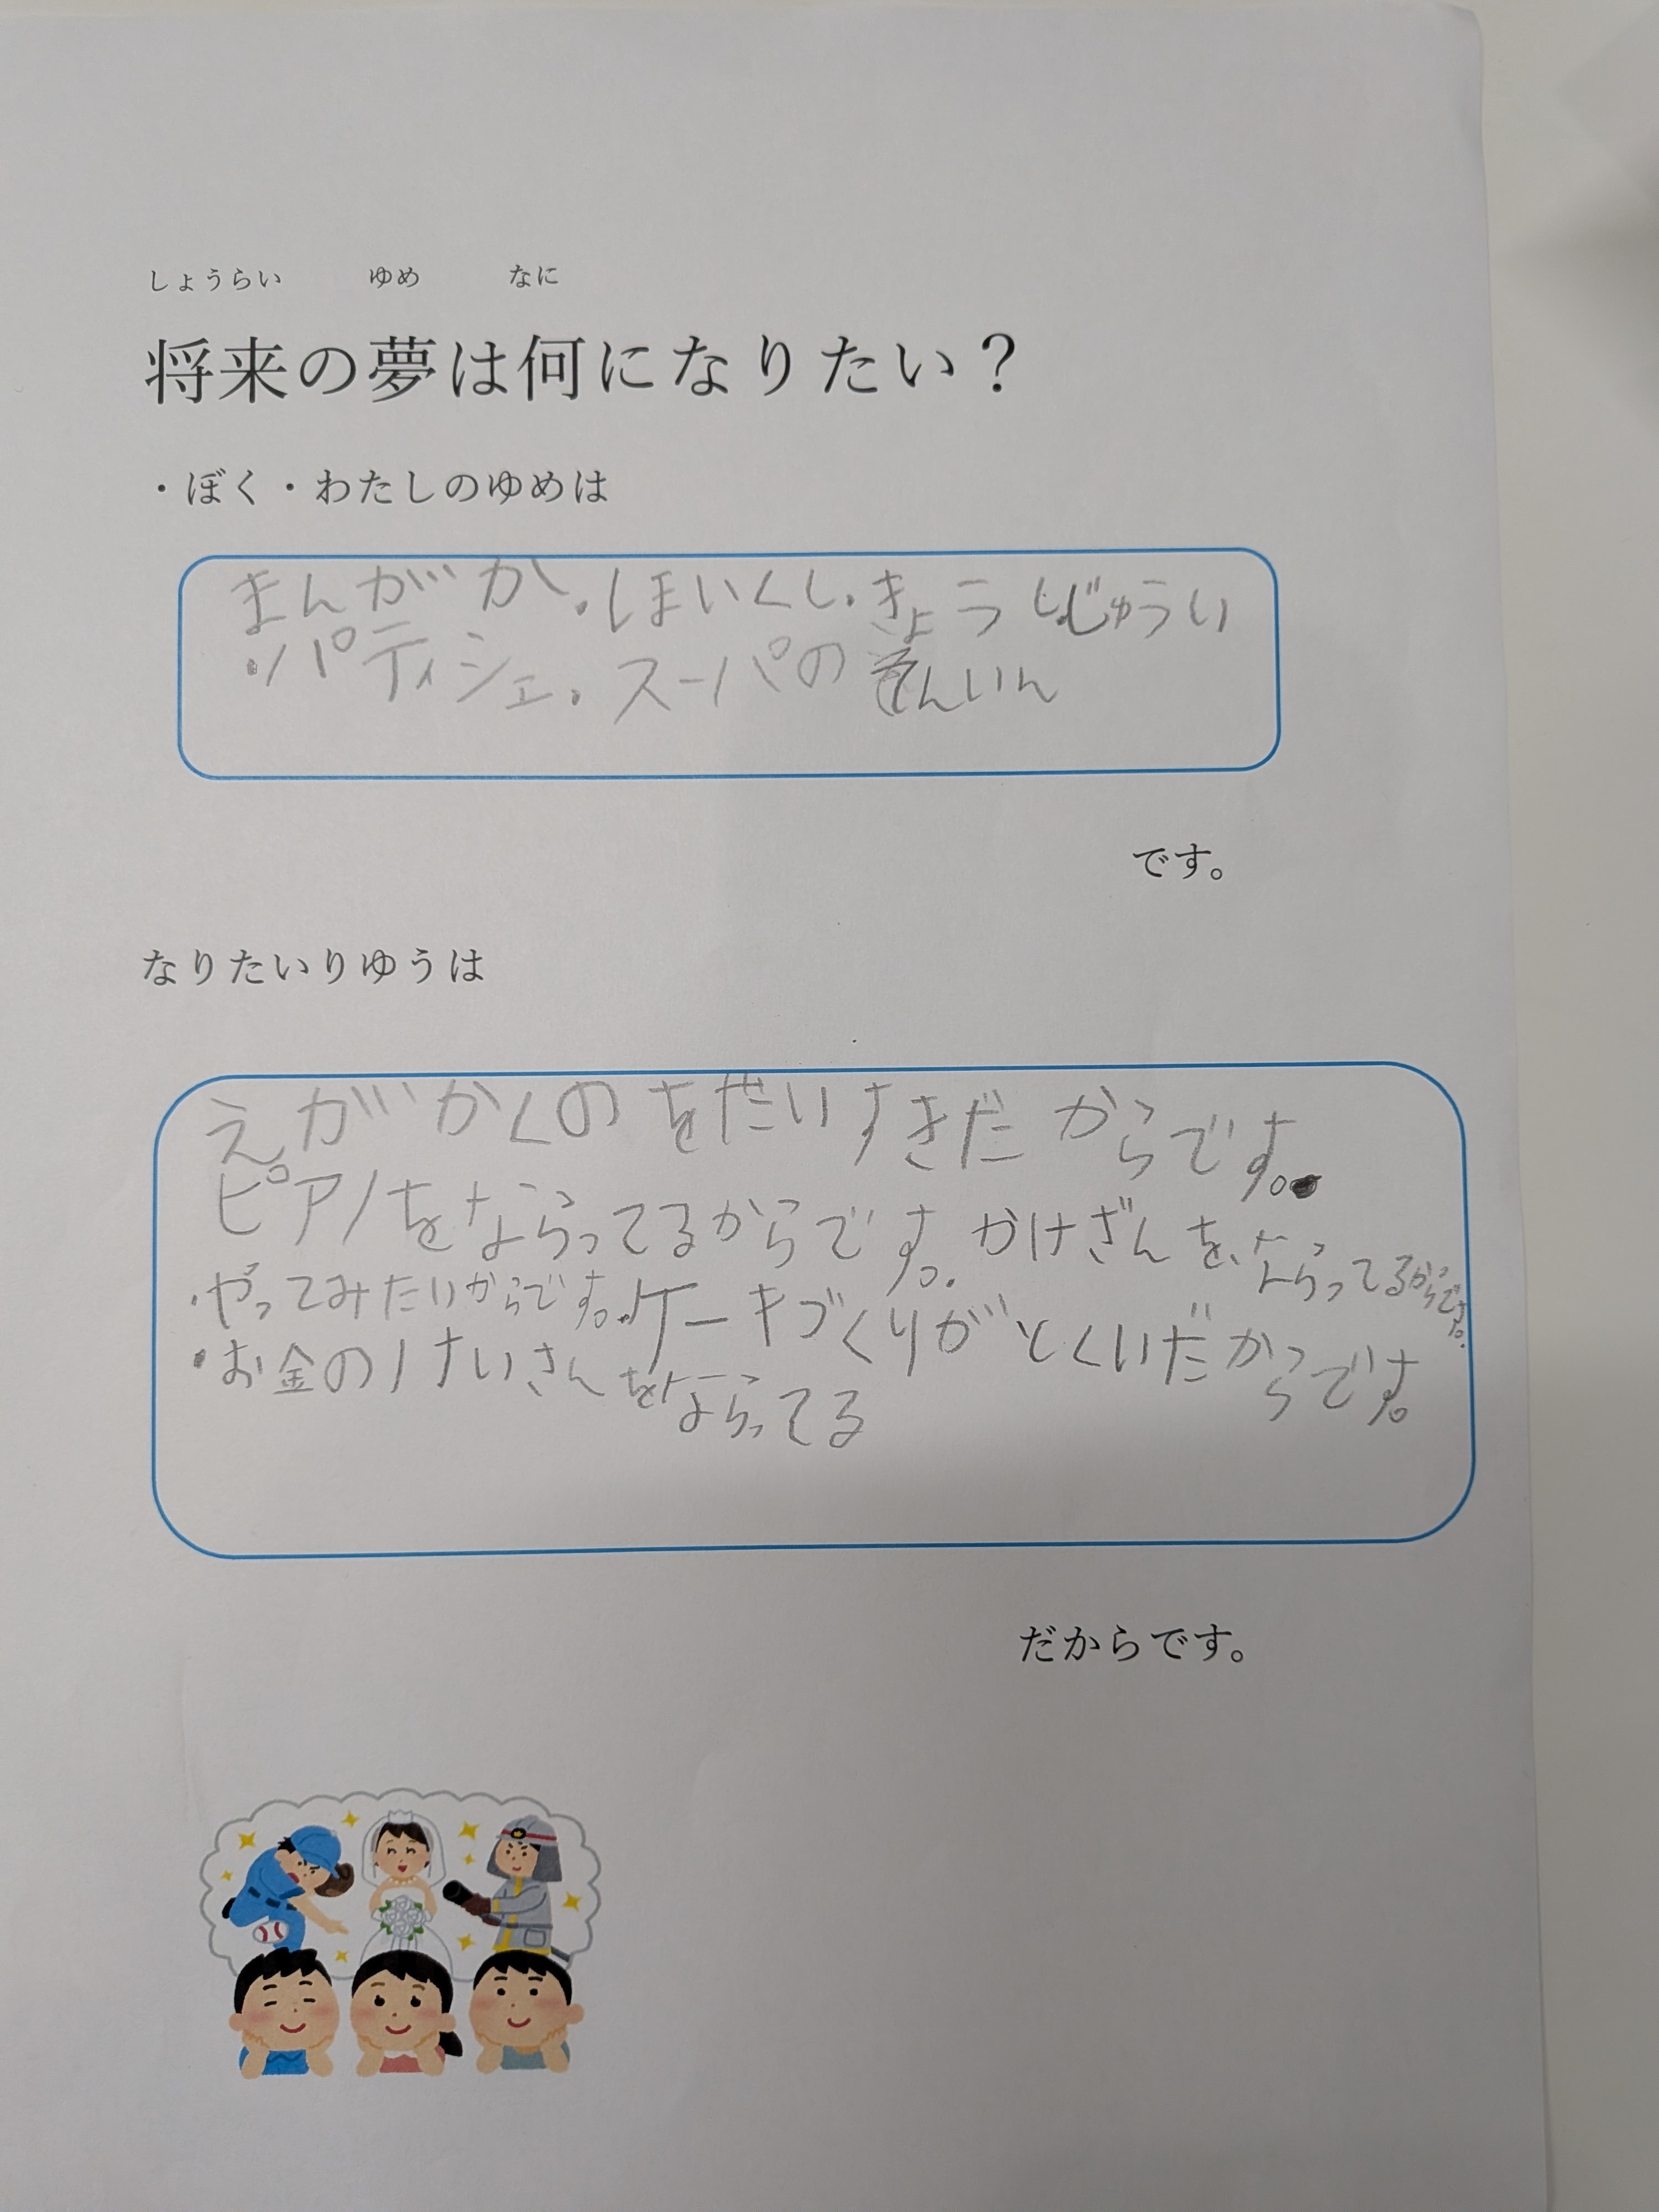 しょうらい ゆめ なに
将来の夢は何になりたい？
・ぼく・わたしのゆめは
まんがか・ほいくし・きょうし・じゅうい
・パティシェ・スーパの てんいん
です。
なりたいりゆうは
えがかくのをだいすきだからです。
ピアノをならってるからです。・かけざんをならってるからです。
・やってみたいからです。・ケーキづくりがとくいだからです。
・お金のけいさんをならってる
だからです。